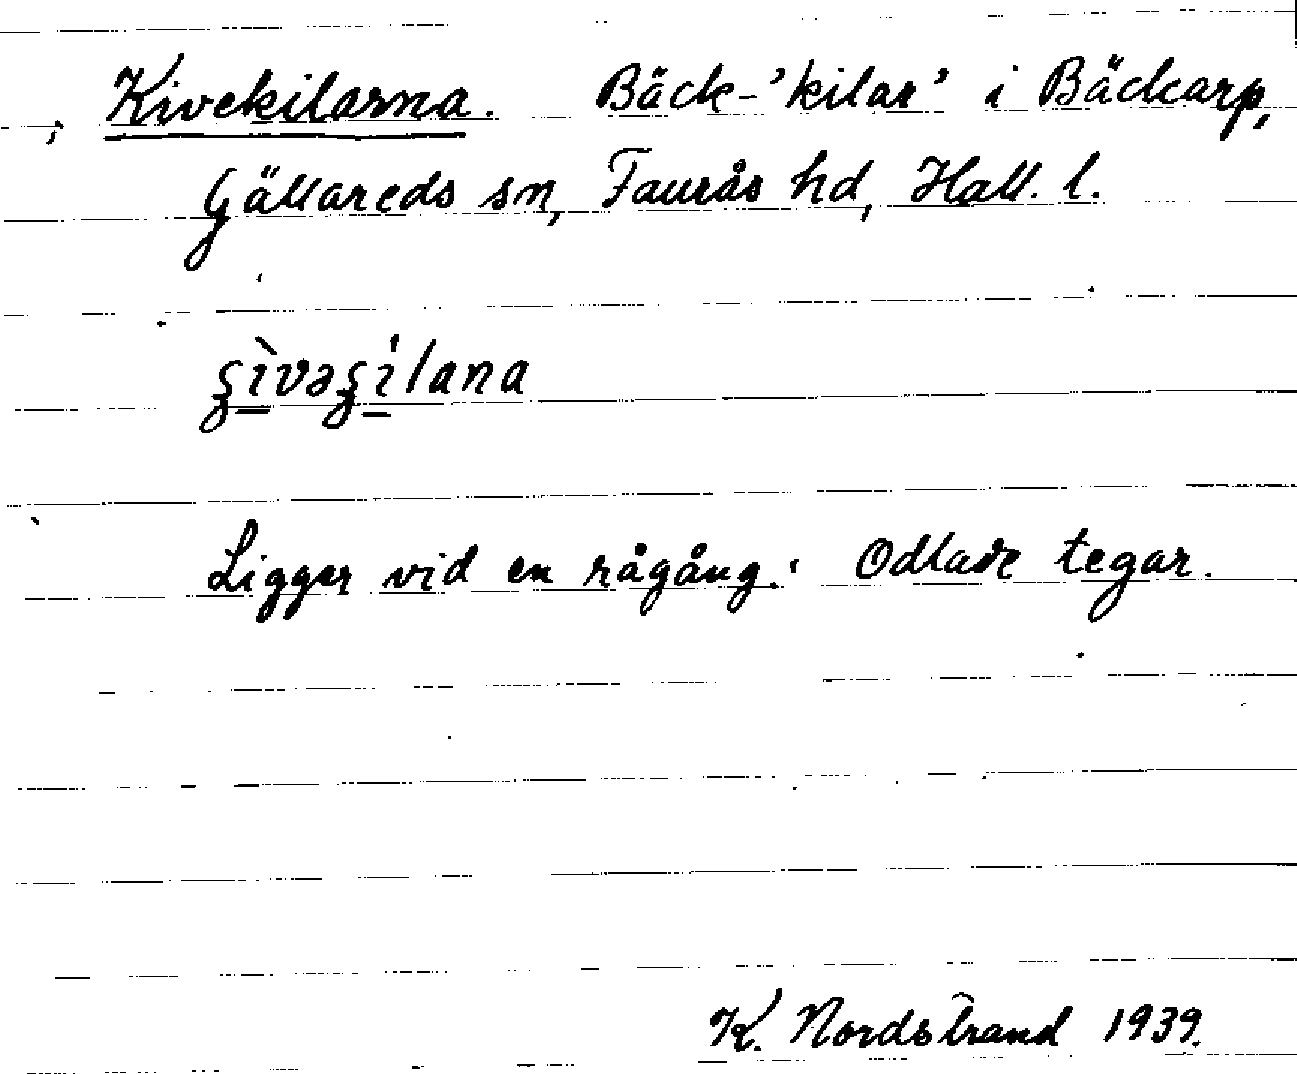 Kivekilarna. Bäck-'kilar' i Bäckarp,
Gällareds sn, Faurås hd, Hall. l.
ʂìvəʂílana
Ligger vid en rågång. Odlade tegar.
K. Nordstrand 1939.